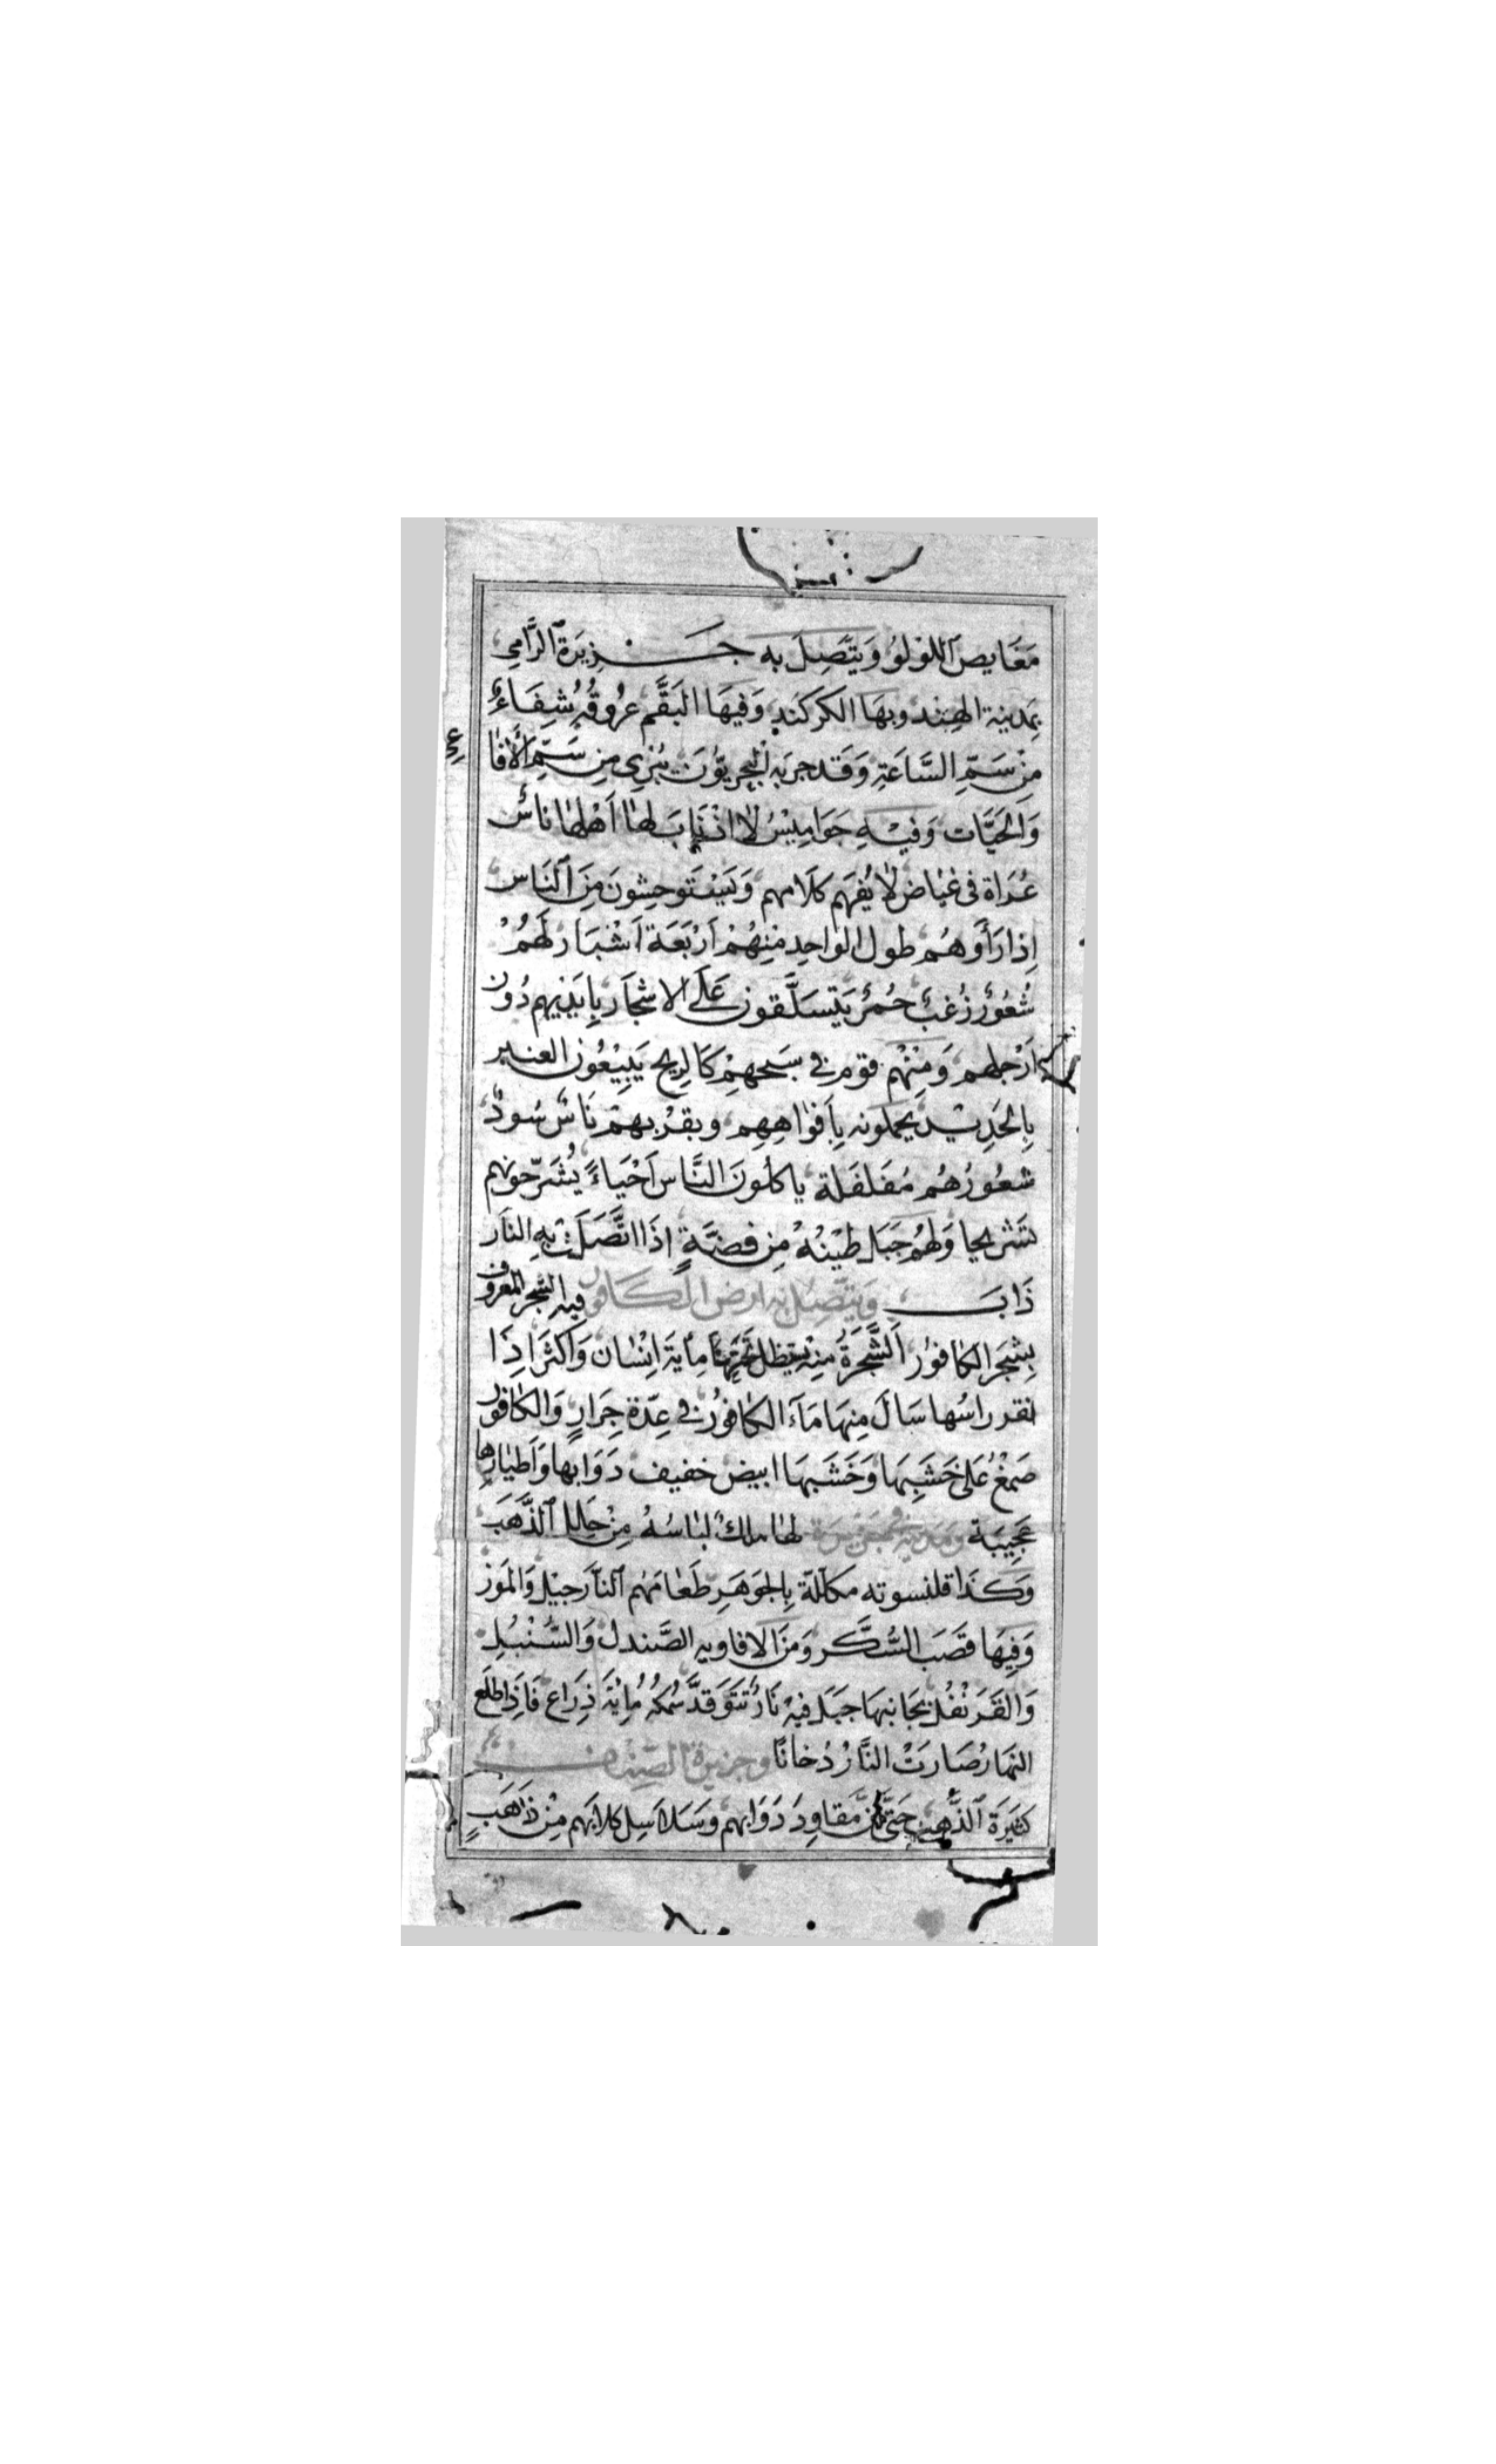 مَغَايِصِ ٱللُولُوِ وَيَتَّصِلُ بِهِ جَزِيرَةُ ٱلرَّامِي
بِمَدِينَةِ الهِند وبهَا الكركَند وَفيهَا البَقَّم عُرُوقُهُ شِفَاءٌ
مِنْ سَمِّ السَّاعَةِ وَقَد جربَهِ البَحريّوُنَ مِن سَمِّ الأَفَا عى
وَالحَيَّات وَفيْهِ جَوَامِيْسُ لٰا اذْنَابَ لهٰا اَهْلهٰا نَاسٌ
عُرَاة فى غيٰاض لٰا يُفهَم كلَامهم وَيَسْتَوحِشونَ مِنَ ٱلنَاس
اِذا رَأَوهُم طول الوٰاحِد مِنهُمْ اَرْبَعَة اَشْبَار لَهُمْ
شُعُوُرٌ زُغبٌ حُمرٌ يَتَسَلَّقون عَلَى الاشجَار بِايَدْيهِم دُون
اَرْجلهم وَمِنْهُم قوم فى سبحهِمْ كَالريح يَبِيْعُون العنبر
بِالحَدِيد يحملونه بِاَفوٰاهِهِم وبقرْبهمْ نَاسٌ سُودٌ
شعُورُهُم مُفلفَلة ياكلُونَ النَّاس اَحْيَاءً يُشَرّحونهم
تشريحا وَلهُم جَبَل طيْنُهُ مِن فضَّةٍ اِذَا اتَّصَلَتْ بِهِ النَار
ذَابَ وَيتَّصِلُ بِه ارض الكَافور فيه الشجر المعروف
بِشجَر الكٰافوُر اَلشَّجَرَةُ مِنْه يَظل تحتهَا مِايَة اِنسٰان وَاكثَر اِذَا
نقر راسُها سَالَ مِنهَا مَآءَ الكٰافوُر فى عِدّة جِرَارٍ وَالكٰافور
صَمْغ عَلى خَشَبِهَا وَخَشَبهَا ابيض خفيف دَوَابها وَاَطيٰارها
عَجِيبَة لهٰا ملك لبٰاسُهُ مِنْ حلل ٱلذَّهَب
وَكَذَا قلنسوته مكلّلة بِالجَوهَرِ طَعٰامَهُم ٱلنَارجيل وَالمَوز
وَفِيهَا قصَب السُّكّر وَمنَ الافاويه الصَّندل وَالسُّنْبُل
وَالقَرَنْفُل بجَانبهَا جَبَل فيهْ نَارٌ تتَوَقدَّ سُمْكُهُ مِايَة ذِرَاع فَاِذَا طلعَ
النهَارُ صَارَتْ النَّارُ دُخانًا وجزيرة الصِّين
كثيرَة ٱلذَّهب حَتَّى اَنّ مَقاوِدَ دَوَابهم وَسَلَاسِل كلابَهم مِنْ ذَهَبٍ